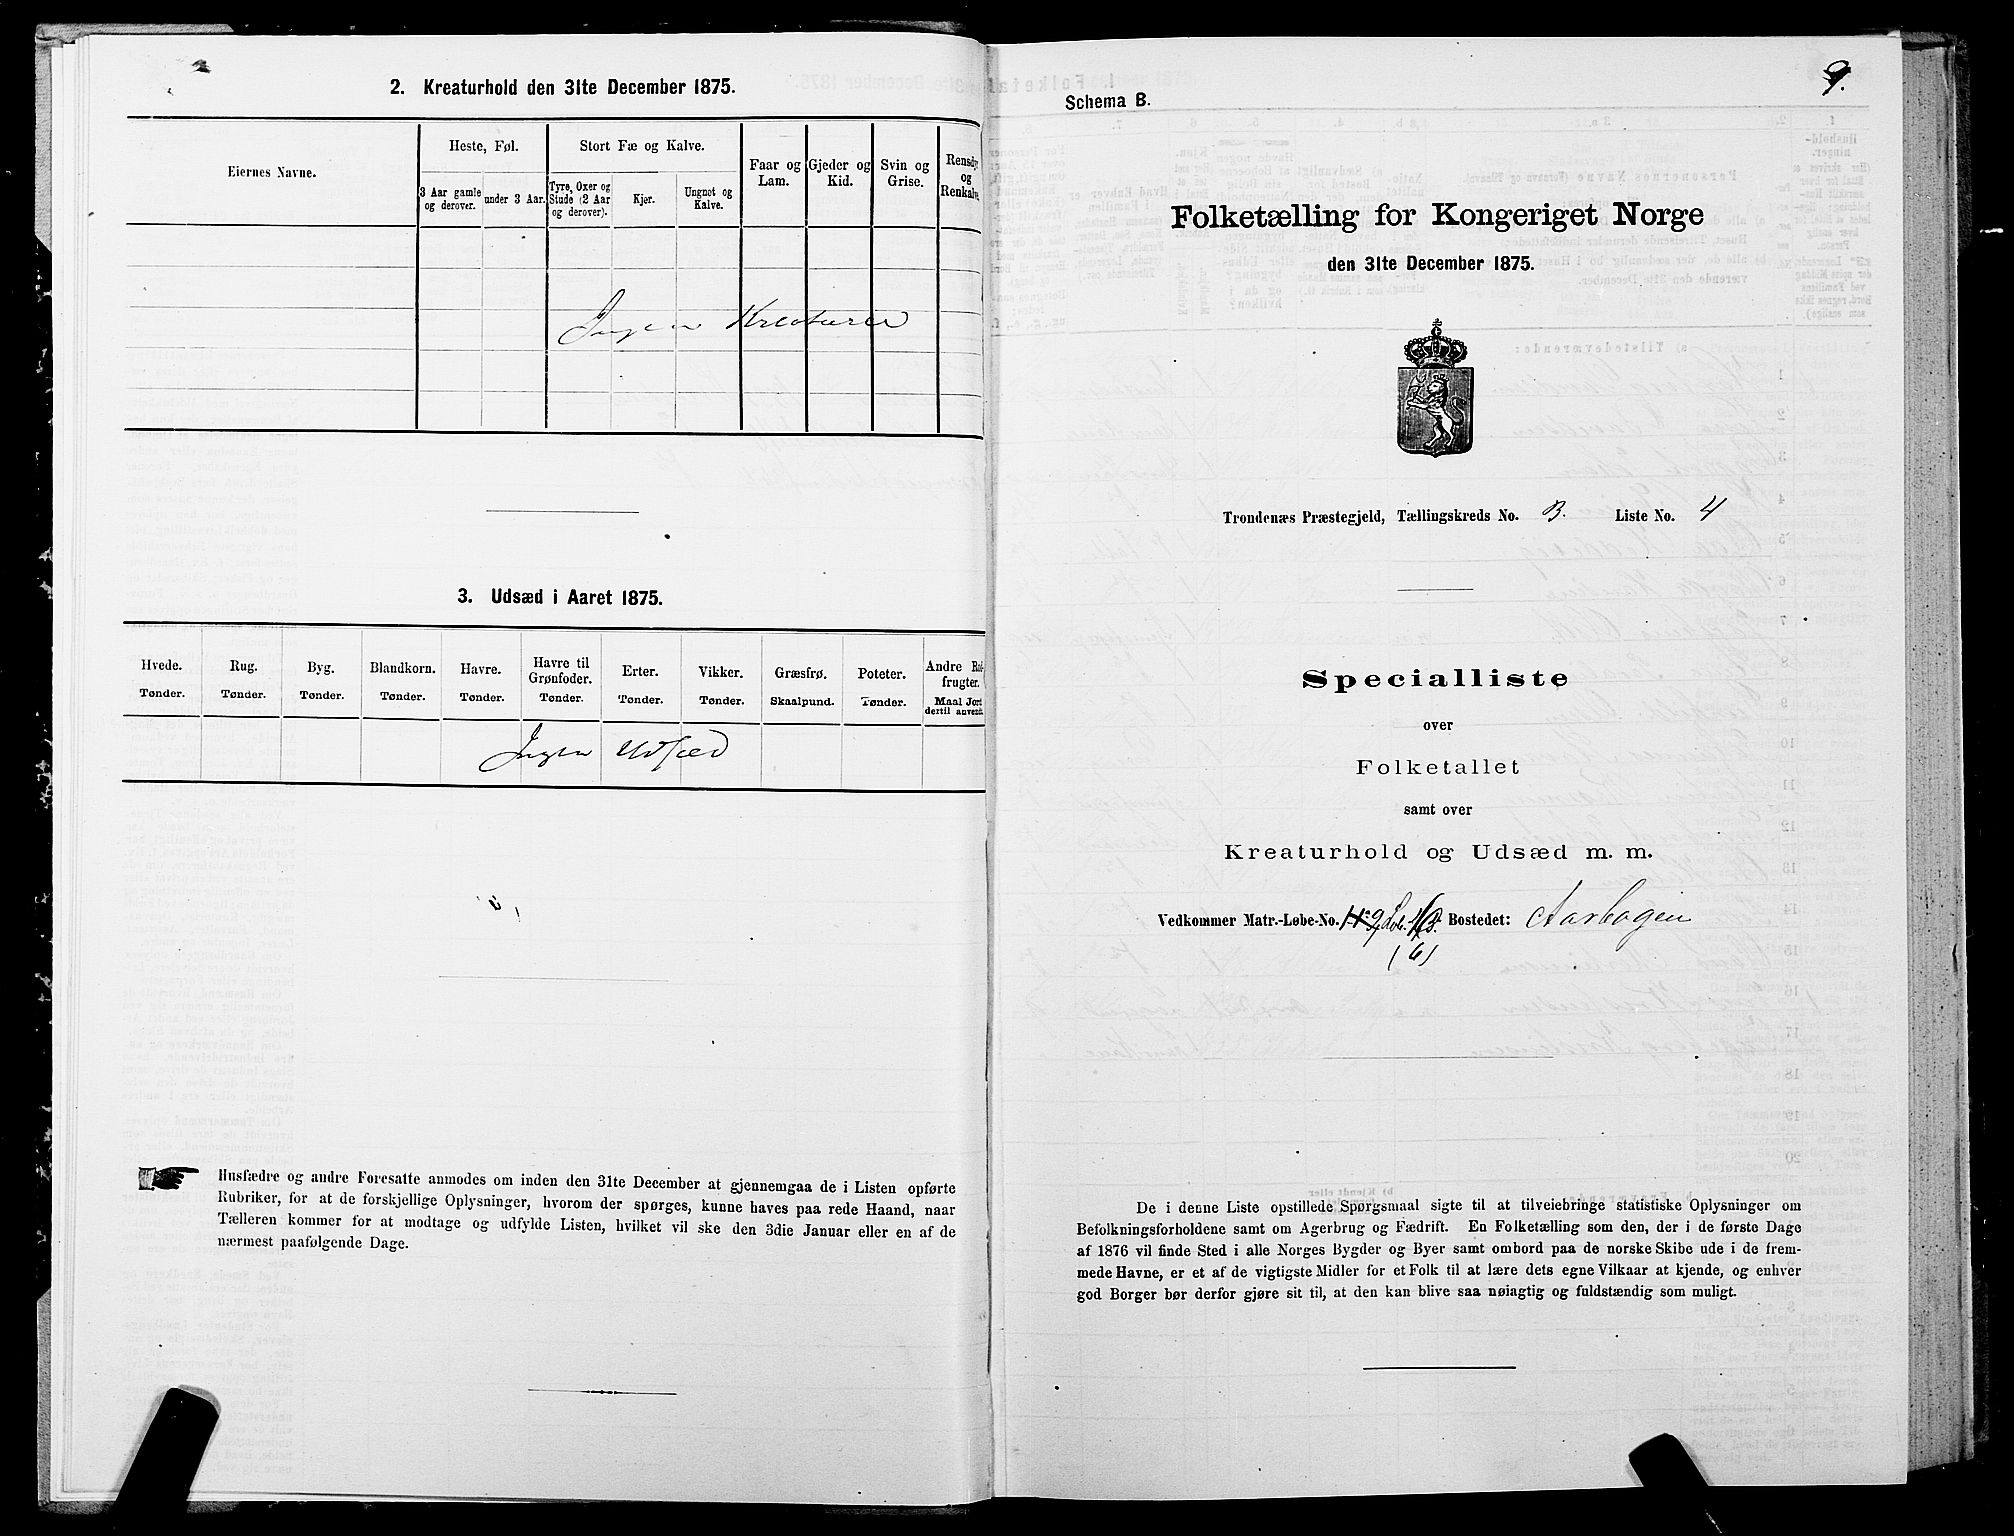 2. Kreaturhold den 31te December 1875.
Eiernes Navne.
Heste, Føl.
Stort Fæ og Kalve.
Faar og Lam.
Gjeder og Kid.
Svin og Grise.
Rensdy og Renkalve.
3 Aar gamle og derover.
under 3 Aar.
Tyre, Oxer og Stude (2 Aar og derover).
Kjer.
Ungnøt og Kalve.
Ingen Kreaturer
3. Udsæd i Aaret 1875.
Hvede. Rug. Byg. Blandkorn. Havre. Havre til Grønfoder. Erter. Vikker. Græsfrø. Poteter. Andre Rodfrugter.
Tønder. Tønder. Tønder. Tønder. Tønder. Tønder. Tønder. Tønder. Skaalpund. Tønder. Maal Jord dertil anvendt.
Ingen Udsæd
Husfædre og andre Foresatte anmodes om inden den 31te December at gjennemgaa de i Listen opførte
Rubriker, for at de forskjellige Oplysninger, hvorom der spørges, kunne haves paa rede Haand, naar
Tælleren kommer for at modtage og udfylde Listen, hvilket vil ske den 3die Januar eller en af de
nærmest paafølgende Dage.
9.
Schema B.
Folketælling for Kongeriget Norge
den 31te December 1875.
Trondenæs Præstegjeld, Tællingskreds No. B. Liste No. 4
Specialliste
over
Folketallet
samt over
Kreaturhold og Udsæd m. m.
Vedkommer Matr.-Løbe-No. Bostedet: Aarbogen
De i denne Liste opstillede Spørgsmaal sigte til at tilveiebringe statistiske Oplysninger om
Befolkningsforholdene samt om Agerbrug og Fædrift. En Folketælling som den, der i de første Dage
af 1876 vil finde Sted i alle Norges Bygder og Byer samt ombord paa de norske Skibe ude i de frem-
mede Havne, er et af de vigtigste Midler for et Folk til at lære dets egne Vilkaar at kjende, og enhver
god Borger bør derfor gjøre sit til, at den kan blive saa nøiagtig og fuldstændig som muligt.